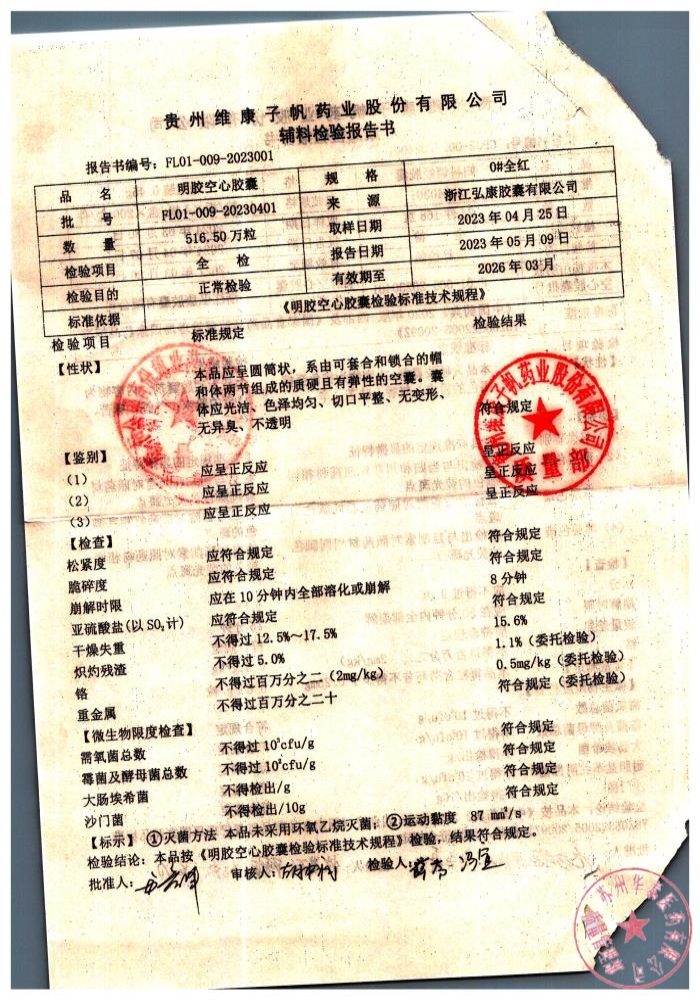 贵州维康子帆药业股份有限公司
辅料检验报告书
报告书编号：FL01-009-2023001
品 名 明胶空心胶囊 规 格 0#全红
批 号 FL01-009-20230401 来 源 浙江弘康胶囊有限公司
数 量 516.50 万粒 取样日期 2023 年 04 月 25 日
检验项目 全 检 报告日期 2023 年 05 月 09 日
检验目的 正常检验 有效期至 2026 年 03 月
标准依据 《明胶空心胶囊检验标准技术规程》
检验项目 标准规定 检验结果
【性状】 本品应呈圆筒状，系由可套合和锁合的帽
和体两节组成的质硬且有弹性的空囊。囊
体应光洁、色泽均匀、切口平整、无变形、 符合规定
无异臭、不透明
【鉴别】
（1） 应呈正反应 呈正反应
（2） 应呈正反应 呈正反应
（3） 应呈正反应 呈正反应
【检查】
松紧度 应符合规定 符合规定
脆碎度 应符合规定 符合规定
崩解时限 应在 10 分钟内全部溶化或崩解 8 分钟
亚硫酸盐(以 SO₂计) 应符合规定 符合规定
干燥失重 不得过 12.5%～17.5% 15.6%
炽灼残渣 不得过 5.0% 1.1%（委托检验）
铬 不得过百万分之二（2mg/kg） 0.5mg/kg（委托检验）
重金属 不得过百万分之二十 符合规定（委托检验）
【微生物限度检查】
需氧菌总数 不得过 10³cfu/g 符合规定
霉菌及酵母菌总数 不得过 10²cfu/g 符合规定
大肠埃希菌 不得检出/g 符合规定
沙门菌 不得检出/10g 符合规定
【标示】 ①灭菌方法 本品未采用环氧乙烷灭菌；②运动黏度 87 mm²/s
检验结论：本品按《明胶空心胶囊检验标准技术规程》检验，结果符合规定。
批准人： 审核人： 检验人：